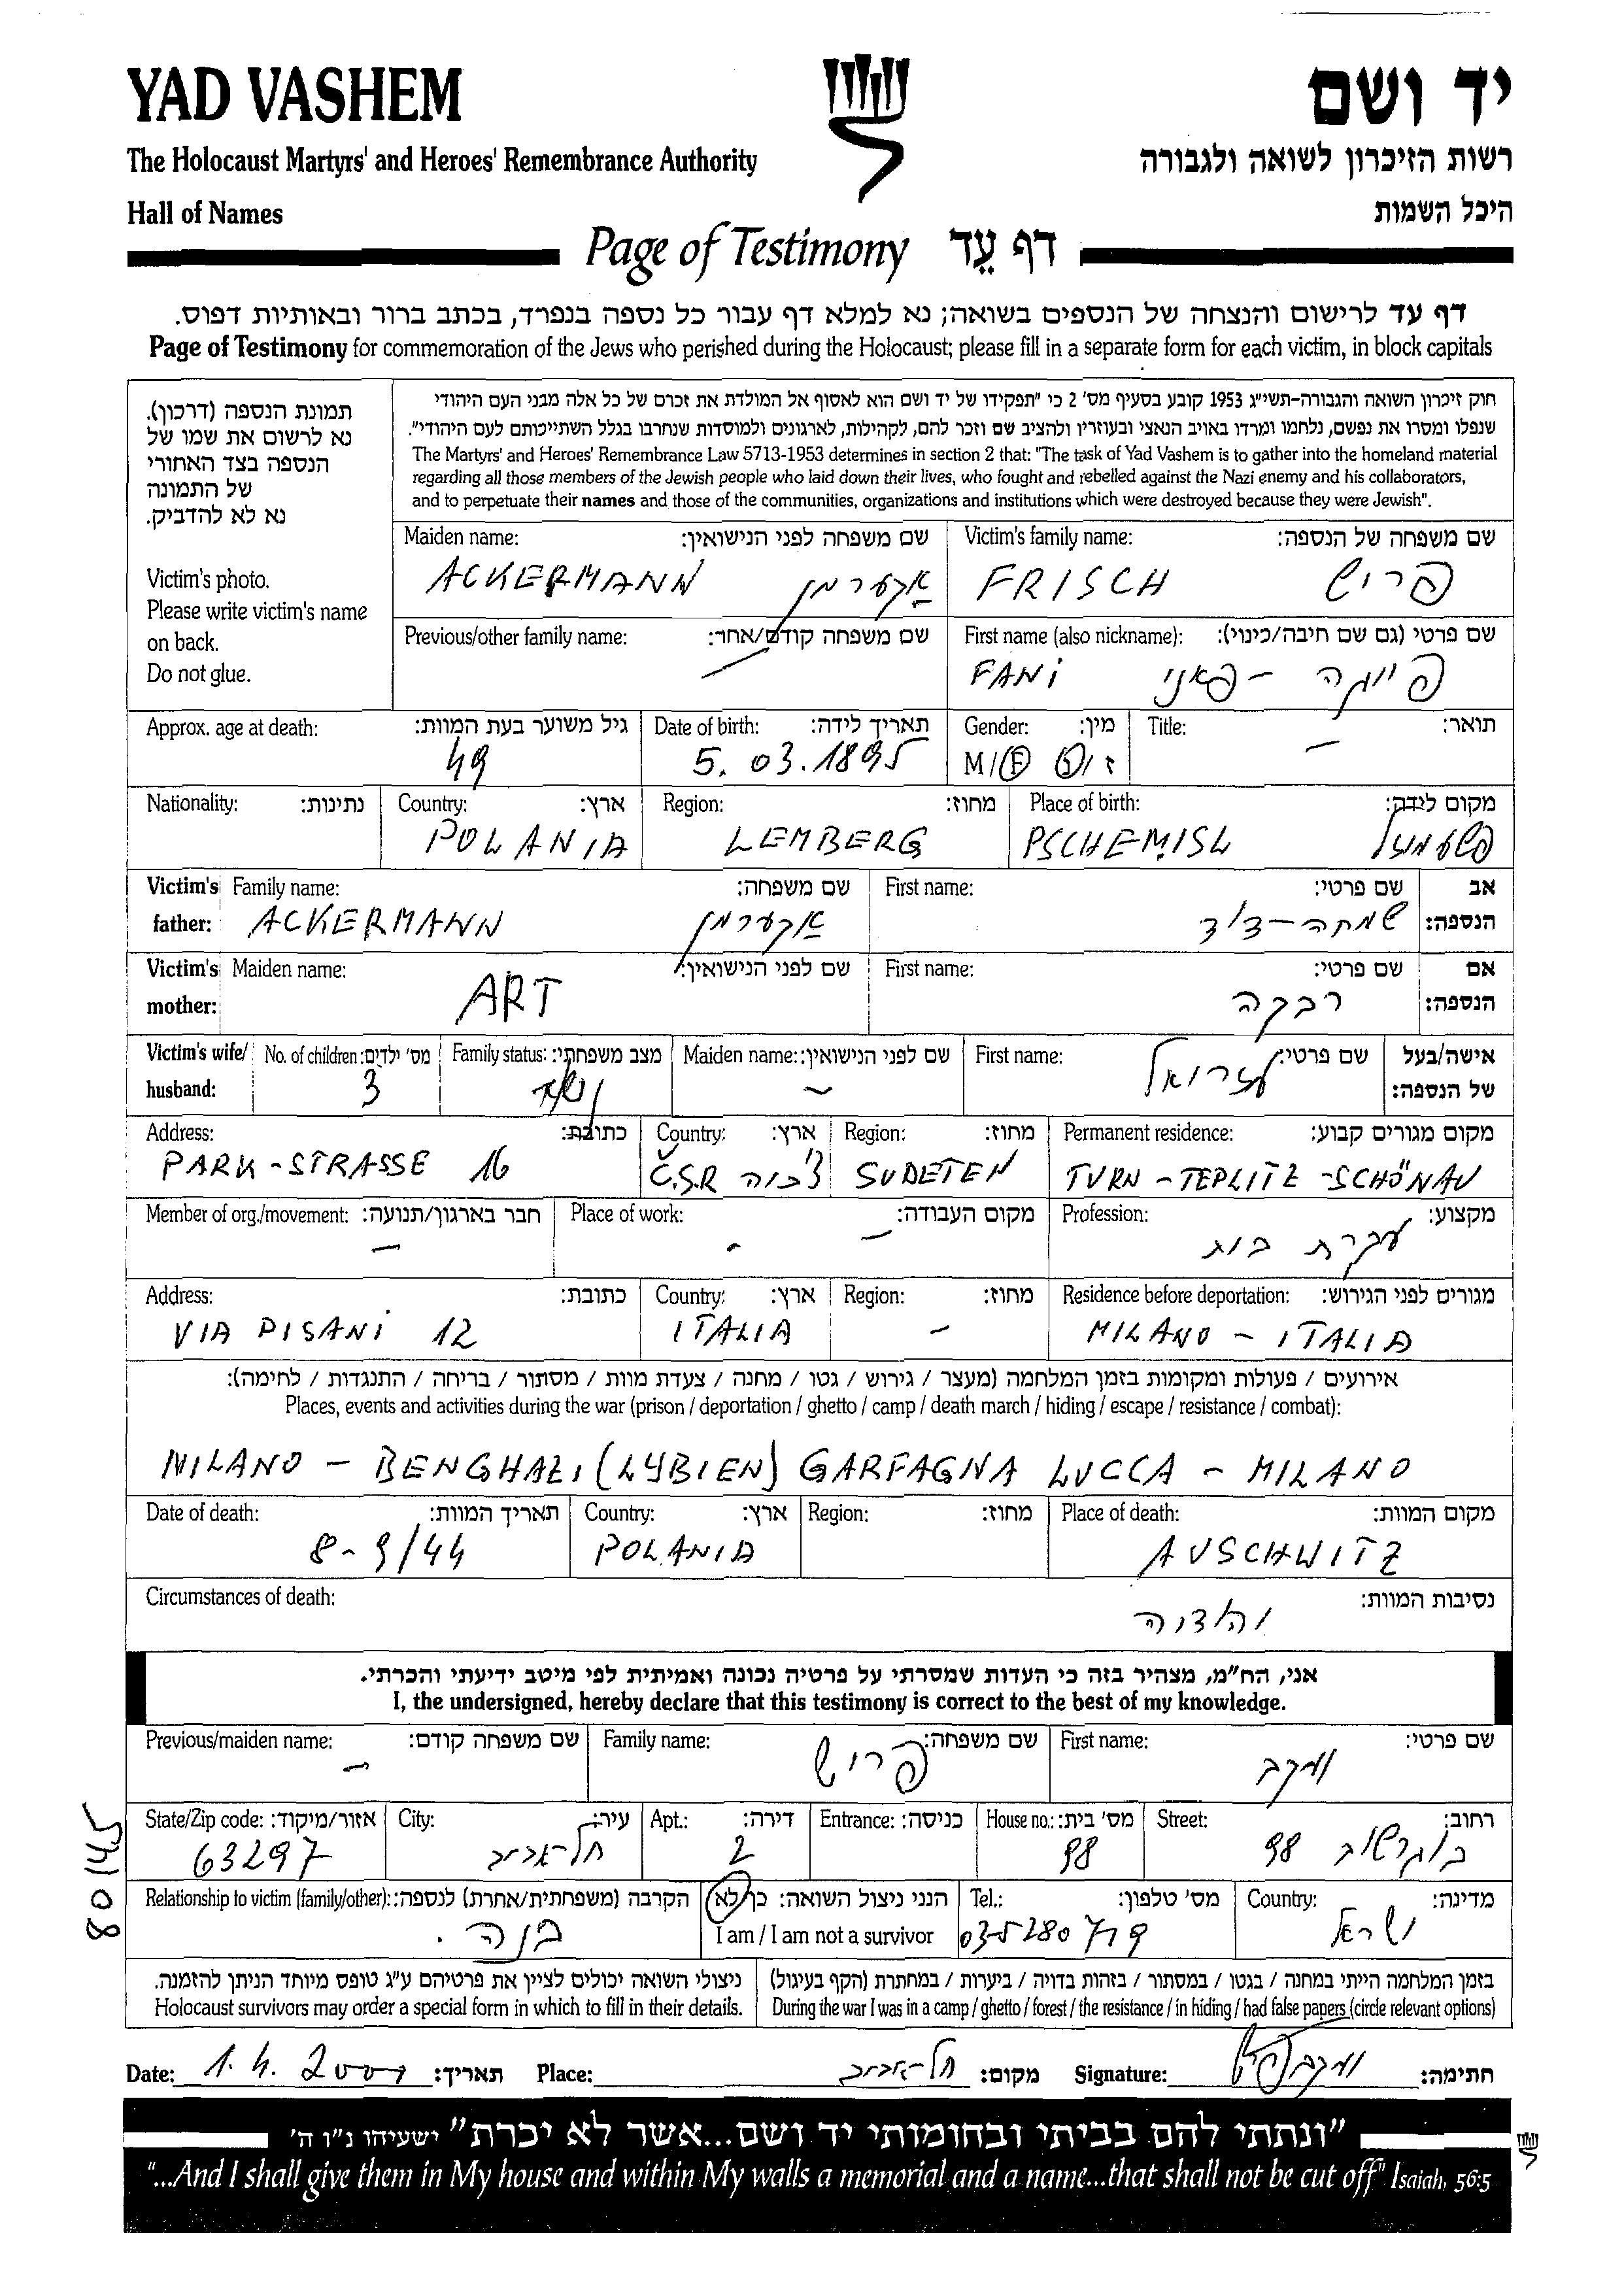 YAD VASHEM
יד ושם
The Holocaust Martyrs' and Heroes' Remembrance Authority
רשות הזיכרון לשואה ולגבורה
Hall of Names
היכל השמות
Page of Testimony דף עֵד
דף עד לרישום והנצחה של הנספים בשואה; נא למלא דף עבור כל נספה בנפרד, בכתב ברור ובאותיות דפוס.
Page of Testimony for commemoration of the Jews who perished during the Holocaust; please fill in a separate form for each victim, in block capitals
תמונת הנספה (דרכון).
נא לרשום את שמו של
הנספה בצד האחורי
של התמונה
נא לא להדביק.
Victim's photo.
Please write victim's name
on back.
Do not glue.
חוק זיכרון השואה והגבורה-תשי"ג 1953 קובע בסעיף מס' 2 כי "תפקידו של יד ושם הוא לאסוף אל המולדת את זכרם של כל אלה מבני העם היהודי
שנפלו ומסרו את נפשם, נלחמו ומרדו באויב הנאצי ובעוזריו ולהציב שם וזכר להם, לקהילות, לארגונים ולמוסדות שנחרבו בגלל השתייכותם לעם היהודי".
The Martyrs' and Heroes' Remembrance Law 5713-1953 determines in section 2 that: "The task of Yad Vashem is to gather into the homeland material
regarding all those members of the Jewish people who laid down their lives, who fought and rebelled against the Nazi enemy and his collaborators,
and to perpetuate their names and those of the communities, organizations and institutions which were destroyed because they were Jewish".
Maiden name: שם משפחה לפני הנישואין: Victim's family name: שם משפחה של הנספה:
ACKERMANN אקערמן FRISCH פריש
Previous/other family name: שם משפחה קודם/אחר: First name (also nickname): שם פרטי (גם שם חיבה/כינוי):
— FANi פייגה - פאני
Approx. age at death: גיל משוער בעת המוות: Date of birth: תאריך לידה: Gender: מין: Title: תואר:
49 5. 03. 1895 M/F ז/נ —
Nationality: נתינות: Country: ארץ: Region: מחוז: Place of birth: מקום לידה:
POLANIA LEMBERG PSCHEMISL
Victim's Family name: שם משפחה: First name: שם פרטי: אב
father: ACKERMANN אקערמן שמחה-דוד הנספה:
Victim's Maiden name: שם לפני הנישואין: First name: שם פרטי: אם
mother: ART רבקה הנספה:
Victim's wife/ No. of children: מס' ילדים: Family status: מצב משפחתי: Maiden name: שם לפני הנישואין: First name: שם פרטי: אישה/בעל
husband: 3 — עזריאל של הנספה:
Address: כתובת: Country: ארץ: Region: מחוז: Permanent residence: מקום מגורים קבוע:
PARK-STRASSE 16 Č.S.R צ'כיה SUDETEN TURN-TEPLITZ-SCHÖNAU
Member of org./movement: חבר בארגון/תנועה: Place of work: מקום העבודה: Profession: מקצוע:
— - — עקרת בית
Address: כתובת: Country: ארץ: Region: מחוז: Residence before deportation: מגורים לפני הגירוש:
VIA PISANi 12 ITALIA — MILANO - ITALIA
אירועים / פעולות ומקומות בזמן המלחמה (מעצר / גירוש / גטו / מחנה / צעדת מוות / מסתור / בריחה / התנגדות / לחימה):
Places, events and activities during the war (prison / deportation / ghetto / camp / death march / hiding / escape / resistance / combat):
MILANO - BENGHAZI (LYBIEN) GARFAGNA LUCCA - MILANO
Date of death: תאריך המוות: Country: ארץ: Region: מחוז: Place of death: מקום המוות:
8-9/44 POLANIA AUSCHWITZ
Circumstances of death: נסיבות המוות:
אני, הח"מ, מצהיר בזה כי העדות שמסרתי על פרטיה נכונה ואמיתית לפי מיטב ידיעתי והכרתי.
I, the undersigned, hereby declare that this testimony is correct to the best of my knowledge.
Previous/maiden name: שם משפחה קודם: Family name: שם משפחה: First name: שם פרטי:
— פריש יעקב
State/Zip code: אזור/מיקוד: City: עיר: Apt.: דירה: Entrance: כניסה: House no.: מס' בית: Street: רחוב:
63297 תל-אביב 2 98 בוגרשוב 98
Relationship to victim (family/other): הקרבה (משפחתית/אחרת) לנספה: הנני ניצול השואה: כן/לא Tel.: מס' טלפון: Country: מדינה:
בנה. I am / I am not a survivor 03-5280719 ישראל
ניצולי השואה יכולים לציין את פרטיהם ע"ג טופס מיוחד הניתן להזמנה. בזמן המלחמה הייתי במחנה / בגטו / במסתור / בזהות בדויה / ביערות / במחתרת (הקף בעיגול)
Holocaust survivors may order a special form in which to fill in their details. During the war I was in a camp / ghetto / forest / the resistance / in hiding / had false papers (circle relevant options)
Date: 1.4. 2000 תאריך: Place: תל-אביב מקום: Signature: חתימה:
"ונתתי להם בביתי ובחומותי יד ושם...אשר לא יכרת" ישעיהו נ"ו ה'
"...And I shall give them in My house and within My walls a memorial and a name...that shall not be cut off" Isaiah, 56:5